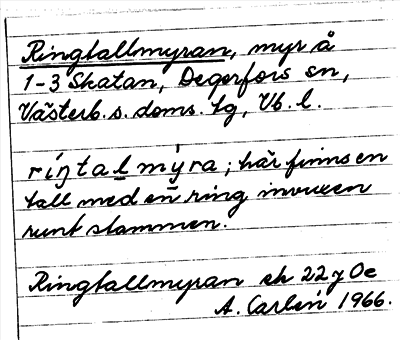 Ringtallmyran, myr å
1-3 Skatan, Degerfors sn,
Västerb. s. doms. tg, Vb. l.
ríŋtalmy̆ra; här finns en
tall med en ring invuxen
runt stammen.
Ringtallmyran ek 22 y 0e
A. Carlén 1966.